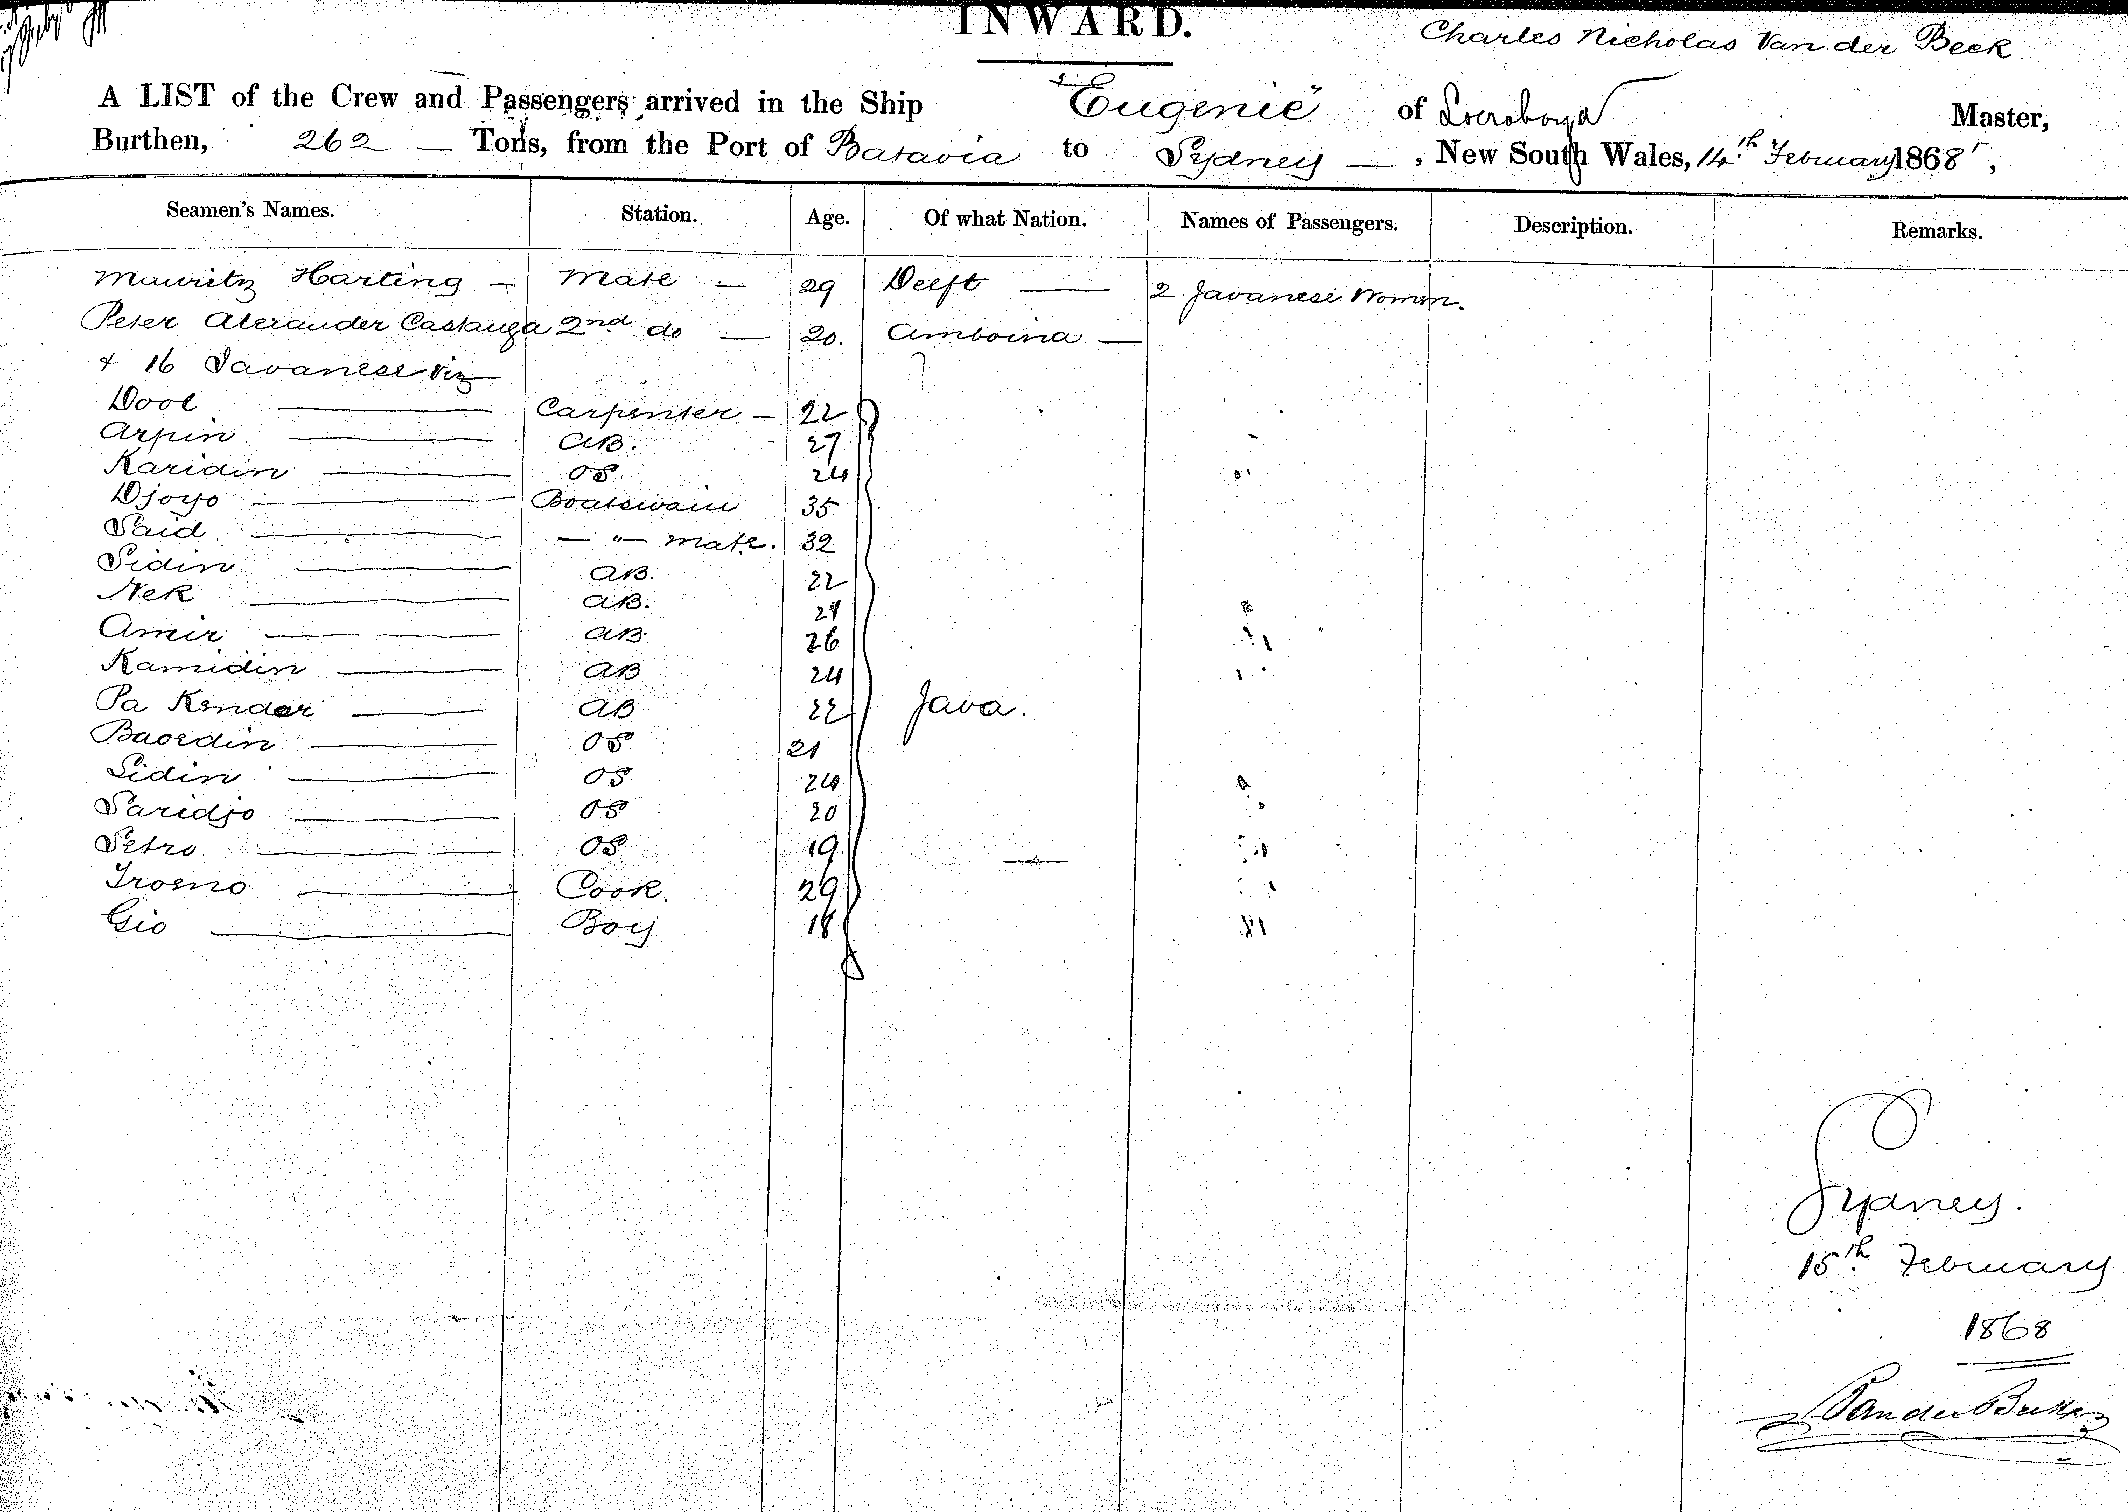 INWARD.
Charles Nicholas Van der Beek
A LIST of the Crew and Passengers arrived in the Ship "Eugenie" of Soerabaya Master,
Burthen, 262 — Tons, from the Port of Batavia to Sydney — , New South Wales, 14th February 1868,
Seamen's Names. Station. Age. Of what Nation. Names of Passengers. Description. Remarks.
Mauritz Harting — Mate — 29 Delft — 2 Javanese Women.
Peter Alexander Castanga 2nd do — 20. Amboina —
& 16 Javanese viz
Dool — Carpenter — 22
Arpin — AB. 27
Karidin — OS 24
Djoyo — Boatswain 35
Said — — " — mate. 32
Sidin — AB. 22
Nek — AB. 27
Amir — AB 26
Kamidin — AB 24
Pa Kendar — AB 22 Java.
Baordin — OS 21
Lidin — OS 24
Saridjo — OS 20
Setro — OS 19
Trosno — Cook. 29
Gio — Boy 18
Sydney.
15th February
1868